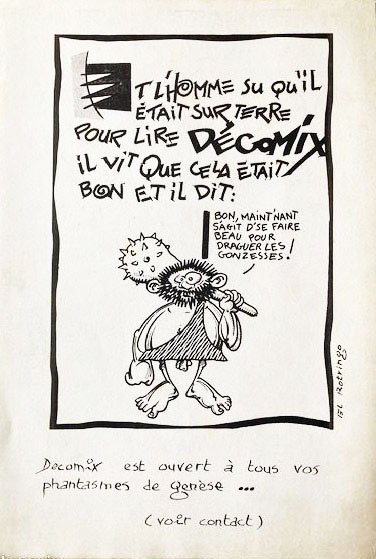 ET L'HOMME SU QU'IL
ÉTAIT SUR TERRE
POUR LIRE DÉCOMIX
IL VIT QUE CELA ÉTAIT
BON ET IL DIT:
BON, MAINT'NANT
S'AGIT D'SE FAIRE
BEAU POUR
DRAGUER LES
GONZESSES!
EL Rotringo
Decomix est ouvert à tous vos
phantasmes de genèse ...
(voir contact)